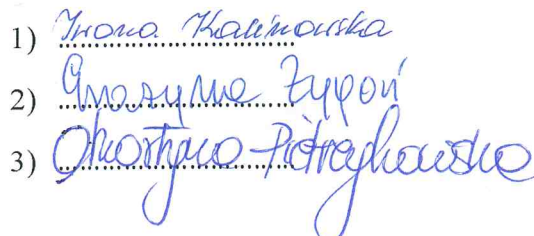 1) Iwona Kalinowska
2) Grażyna Zygoń
3) Martyna Pietrzykowska